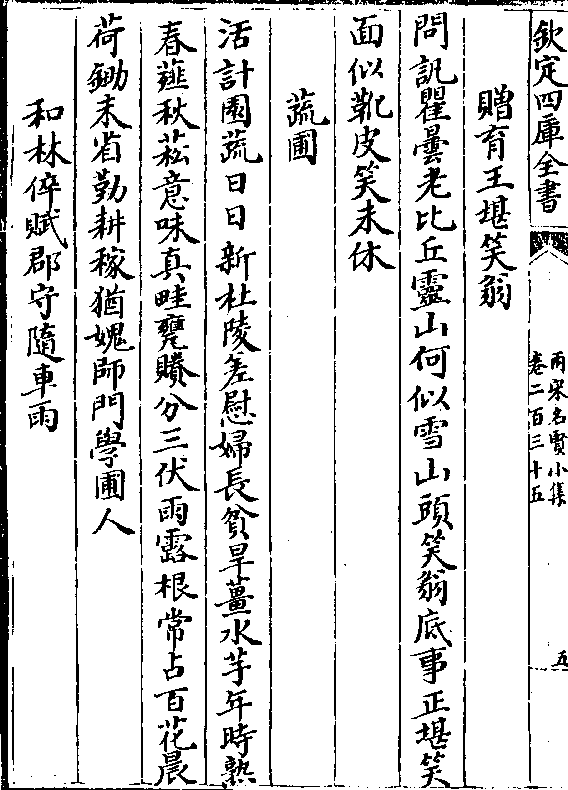 欽定四庫全書
兩宋名賢小集
卷二百三十五
五
贈育王堪笑翁
問訊瞿曇老比丘靈山何似雪山頭笑翁底事正堪笑
面似靴皮笑未休
蔬圃
活計園蔬日日新杜陵差慰婦長貧旱薑水芋年時熟
春薤秋菘意味真畦甕賸分三伏雨露根常占百花晨
荷鋤未省勤耕稼猶媿師門學圃人
和林倅賦郡守隨車雨